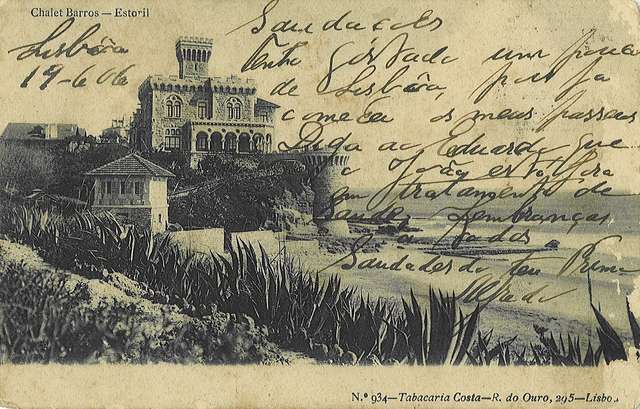 Chalet Barros — Estoril
Lisbôa
19-6-06
Saudações
Tenho gostado um pouco
de Lisbôa, porque já
comecei os meus passeios
Diga ao Eduardo que
o João está fóra
em tratamento de
saude, Lembranças
a todos
Saudades do teu Primo
Alfredo
N.º 934—Tabacaria Costa—R. do Ouro, 295—Lisboa